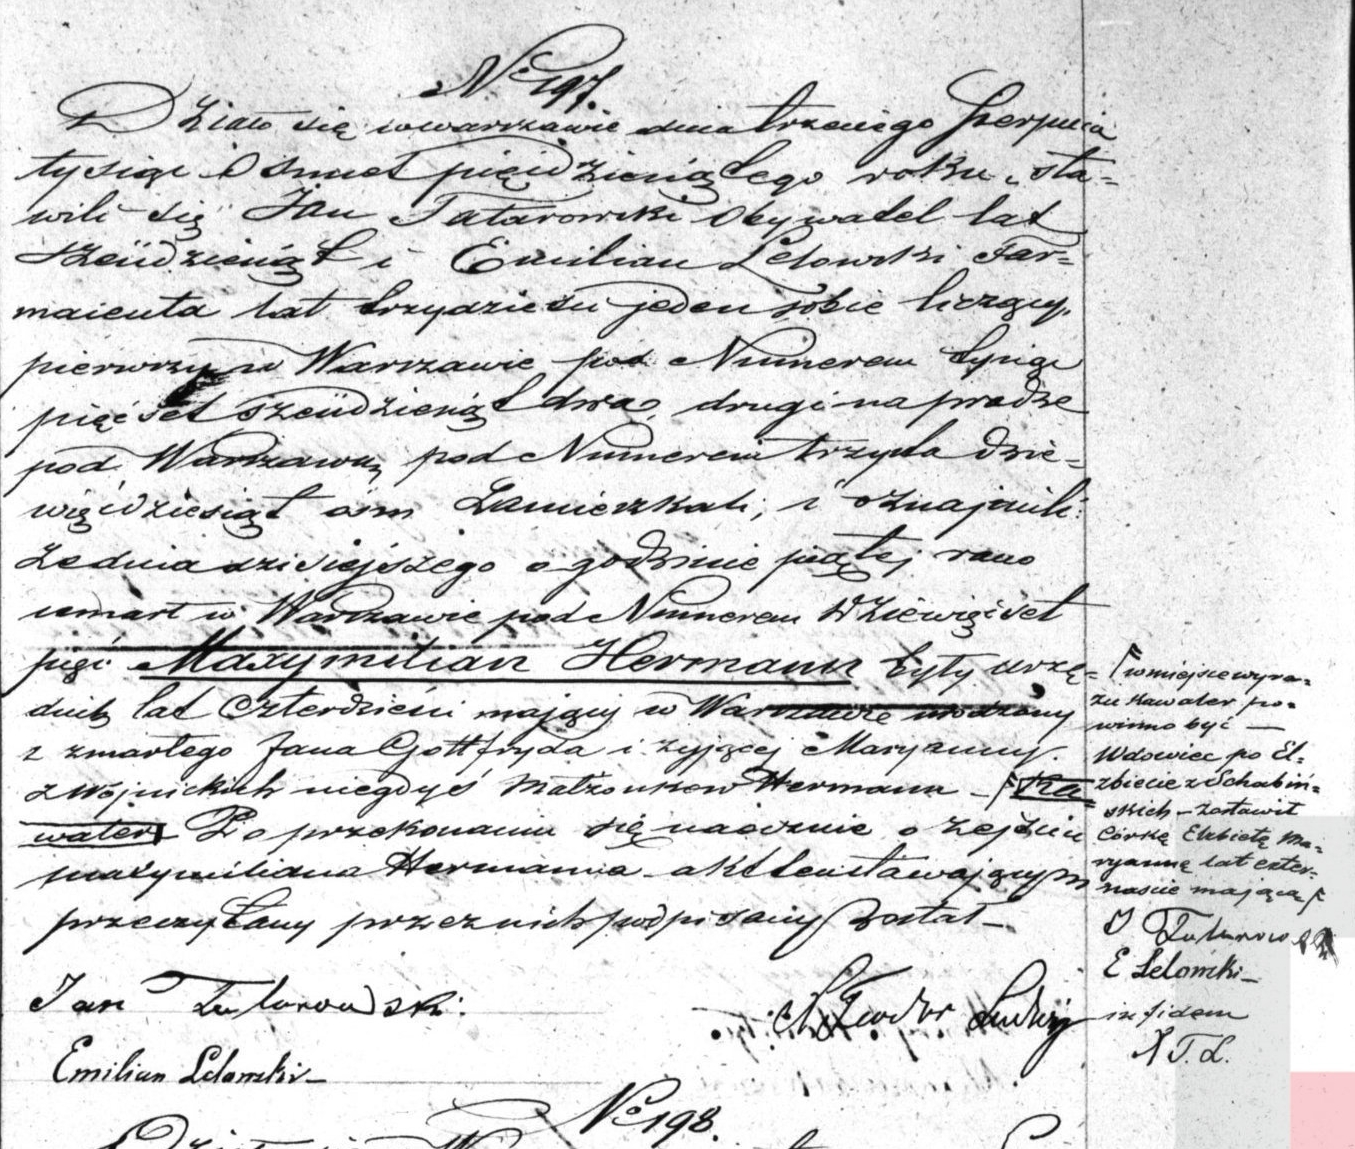 No 197.
Działo się w Warszawie dnia trzeciego Sierpnia
tysiąc Osmset pięćdziesiątego roku, sta=
wili się Jan Tatarowski Obywatel lat
sześdziesiąt i Emilian Lelowski Far=
maceuta lat trzydzieści jeden sobie liczący,
pierwszy w Warszawie pod Numerem tysiąc
pięćset sześdziesiąt dwa, drugi na pradze
pod Warszawą pod Numerem trzysta dzie=
więćdziesiąt ośm Zamieszkali, i oznajmili
że dnia dzisiejszego o godzinie piątej rano
umarł w Warszawie pod Numerem Dziewięćset
pięć Maxymilian Hermann były urzę=
dnik lat Czterdzieści mający w Warszawie urodzony
z zmarłego Jana Gottfryda i żyjącej Maryanny
z Wojnickich niegdyś Małżonków Hermann - Ka
waler Po przekonaniu się naocznie o zejściu
Maxymiliana Hermanna akt ten stawającym
przeczytany przez nich podpisany Został -
w miejsce wyra=
zu Kawaler po=
winno być -
Wdowiec po El=
żbiecie z Schabiń=
skich - zostawił
Córkę Elżbietę Ma=
ryannę lat czter=
naście mającą
J Tatarow
E Lelowski -
in fidem
X T. L.
Jan Tatarowski.
Emilian Lelowski -
X Teodor Ludwig
No 198.